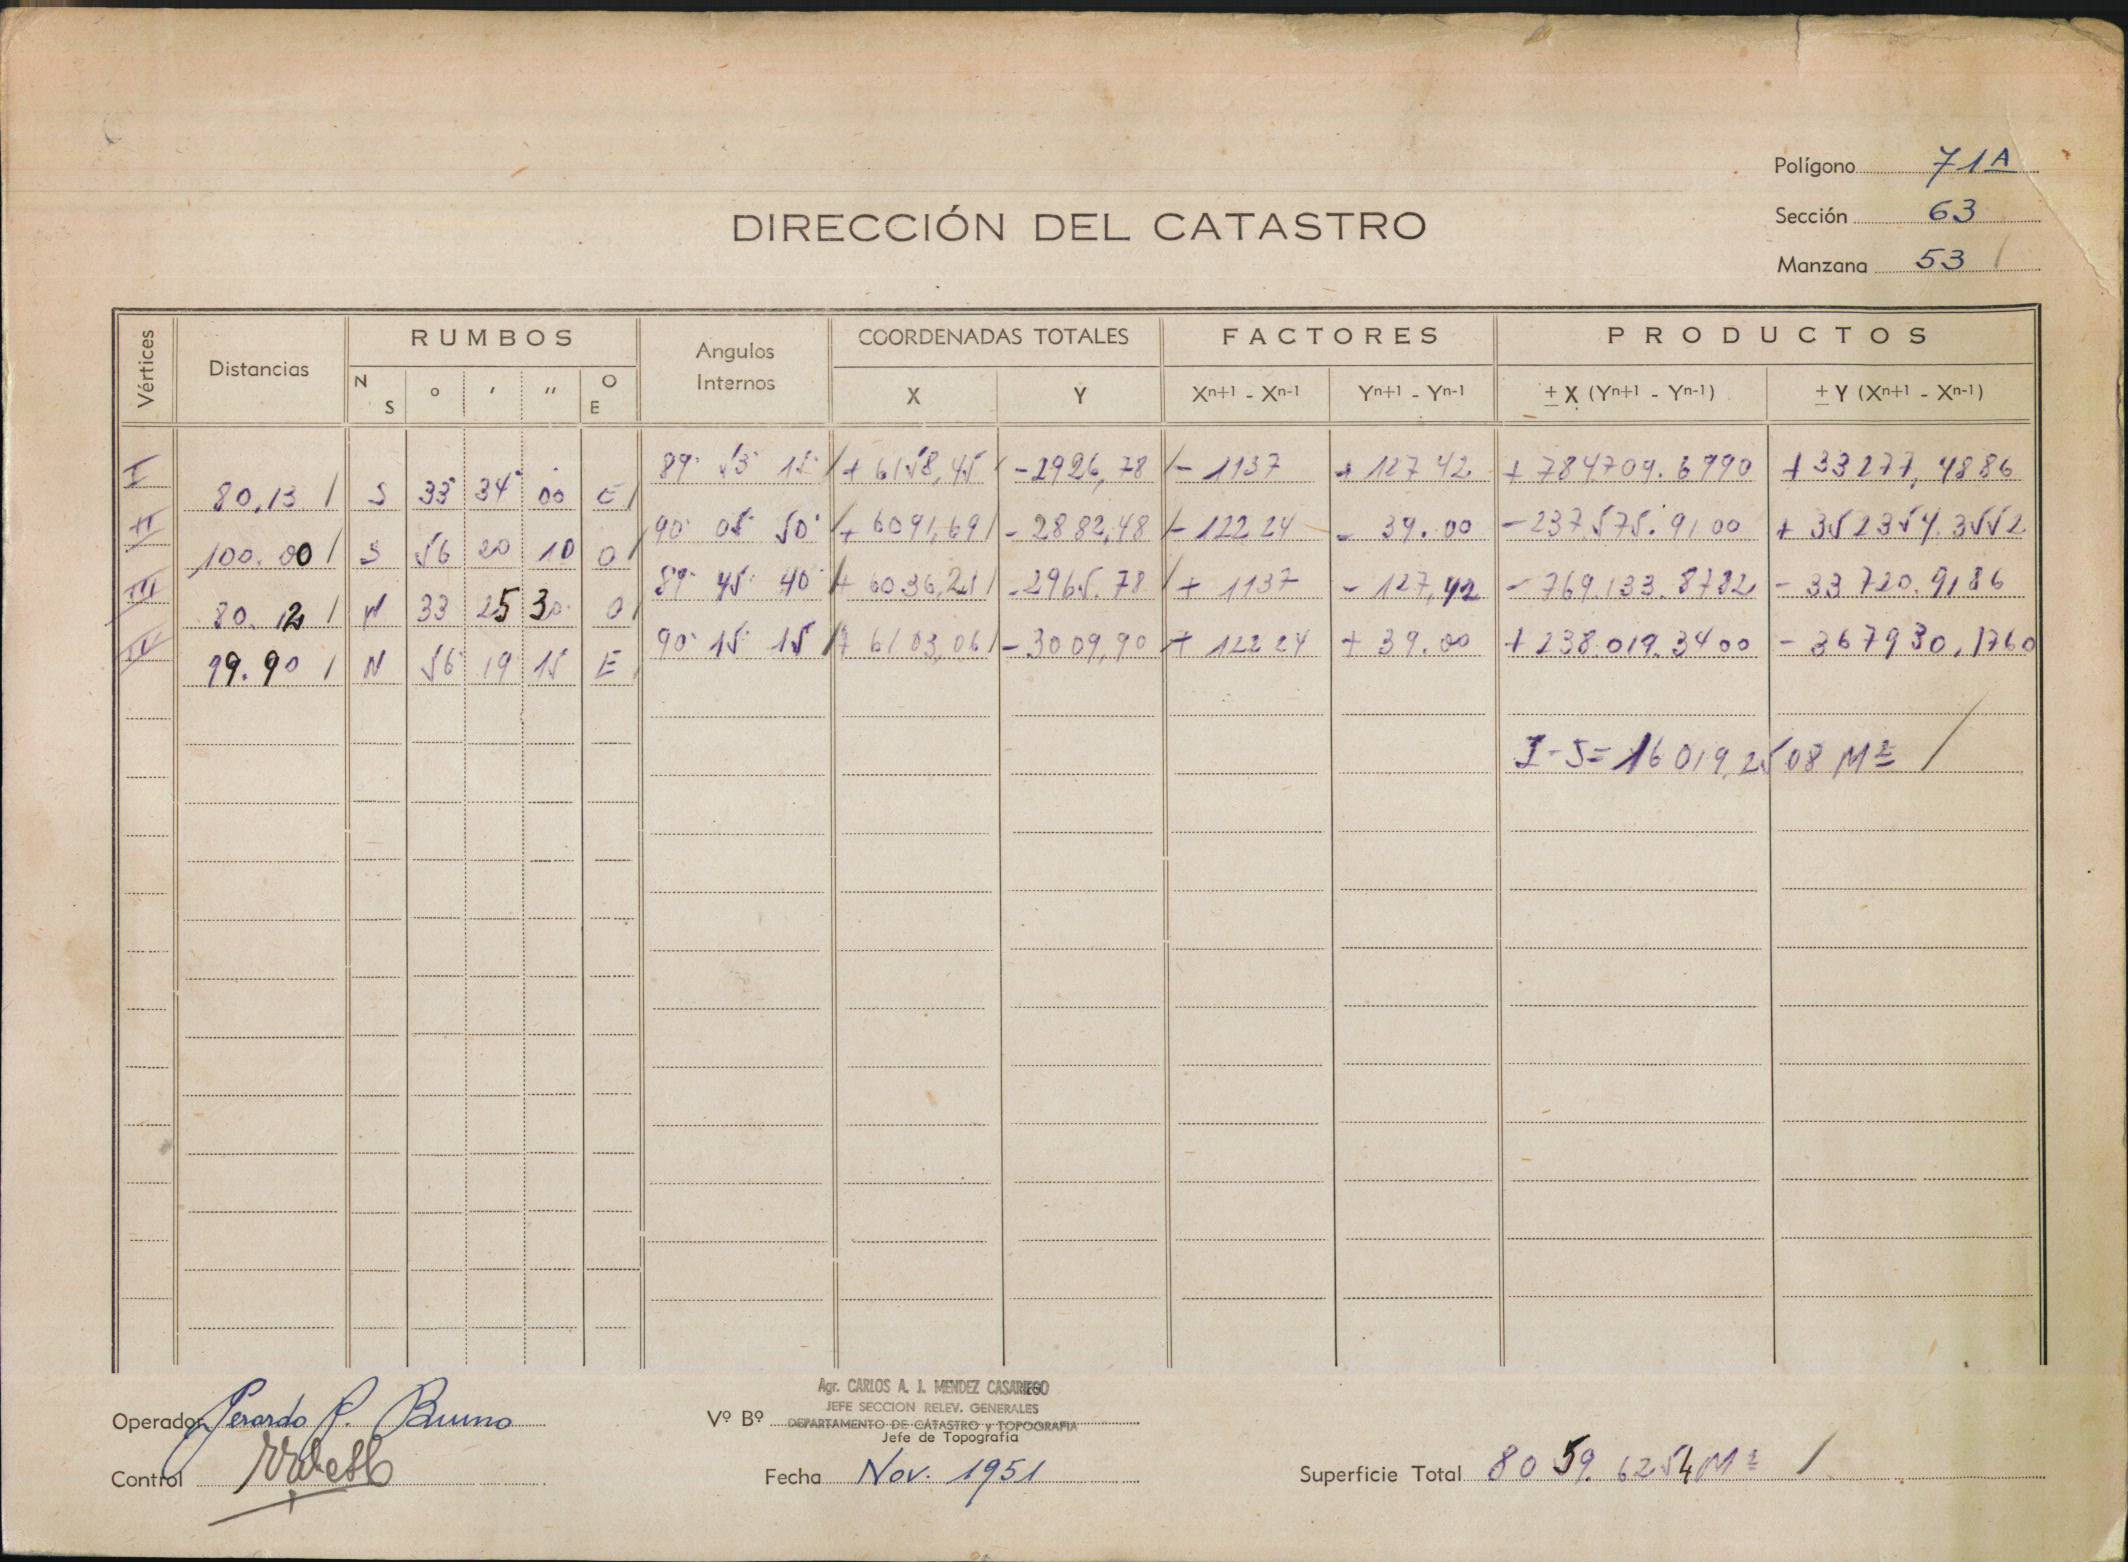 Polígono 71A
DIRECCIÓN DEL CATASTRO
Sección 63
Manzana 53 /
Vértices Distancias RUMBOS Angulos Internos COORDENADAS TOTALES FACTORES PRODUCTOS
N S ° ' " O E X Y Xn+1 - Xn-1 Yn+1 - Yn-1 ± X (Yn+1 - Yn-1) ± Y (Xn+1 - Xn-1)
I 89° 53' 15" / + 6158,45 / - 2926,78 / - 1137 + 127 42 + 784709.6990 + 33277,4886
80,13 / S 33 34 00 E /
II 90° 05' 50" / + 6091,69 / - 2882,48 / - 122 24 - 39.00 - 237.575.9100 + 352354.3552
100.00 / S 56 20 10 O /
III 89° 45' 40" / + 6036,21 / - 2965.78 / + 1137 - 127,42 - 769.133.8782 - 33720.9186
80.12 / N 33 25 30 O /
IV 90° 15' 15 / + 6103,06 / - 3009,90 / + 122 24 + 39.00 + 238.019.3400 - 367930,1760
99.90 / N 56 19 15 E /
I-S= 16019,2508 M² /
Agr. CARLOS A. J. MENDEZ CASARIEGO
JEFE SECCION RELEV. GENERALES
Operador Gerardo R. Bruno Vº Bº DEPARTAMENTO DE CATASTRO y TOPOGRAFIA
Jefe de Topografía
Control Fecha Nov. 1951 Superficie Total 8059.6254 M² /